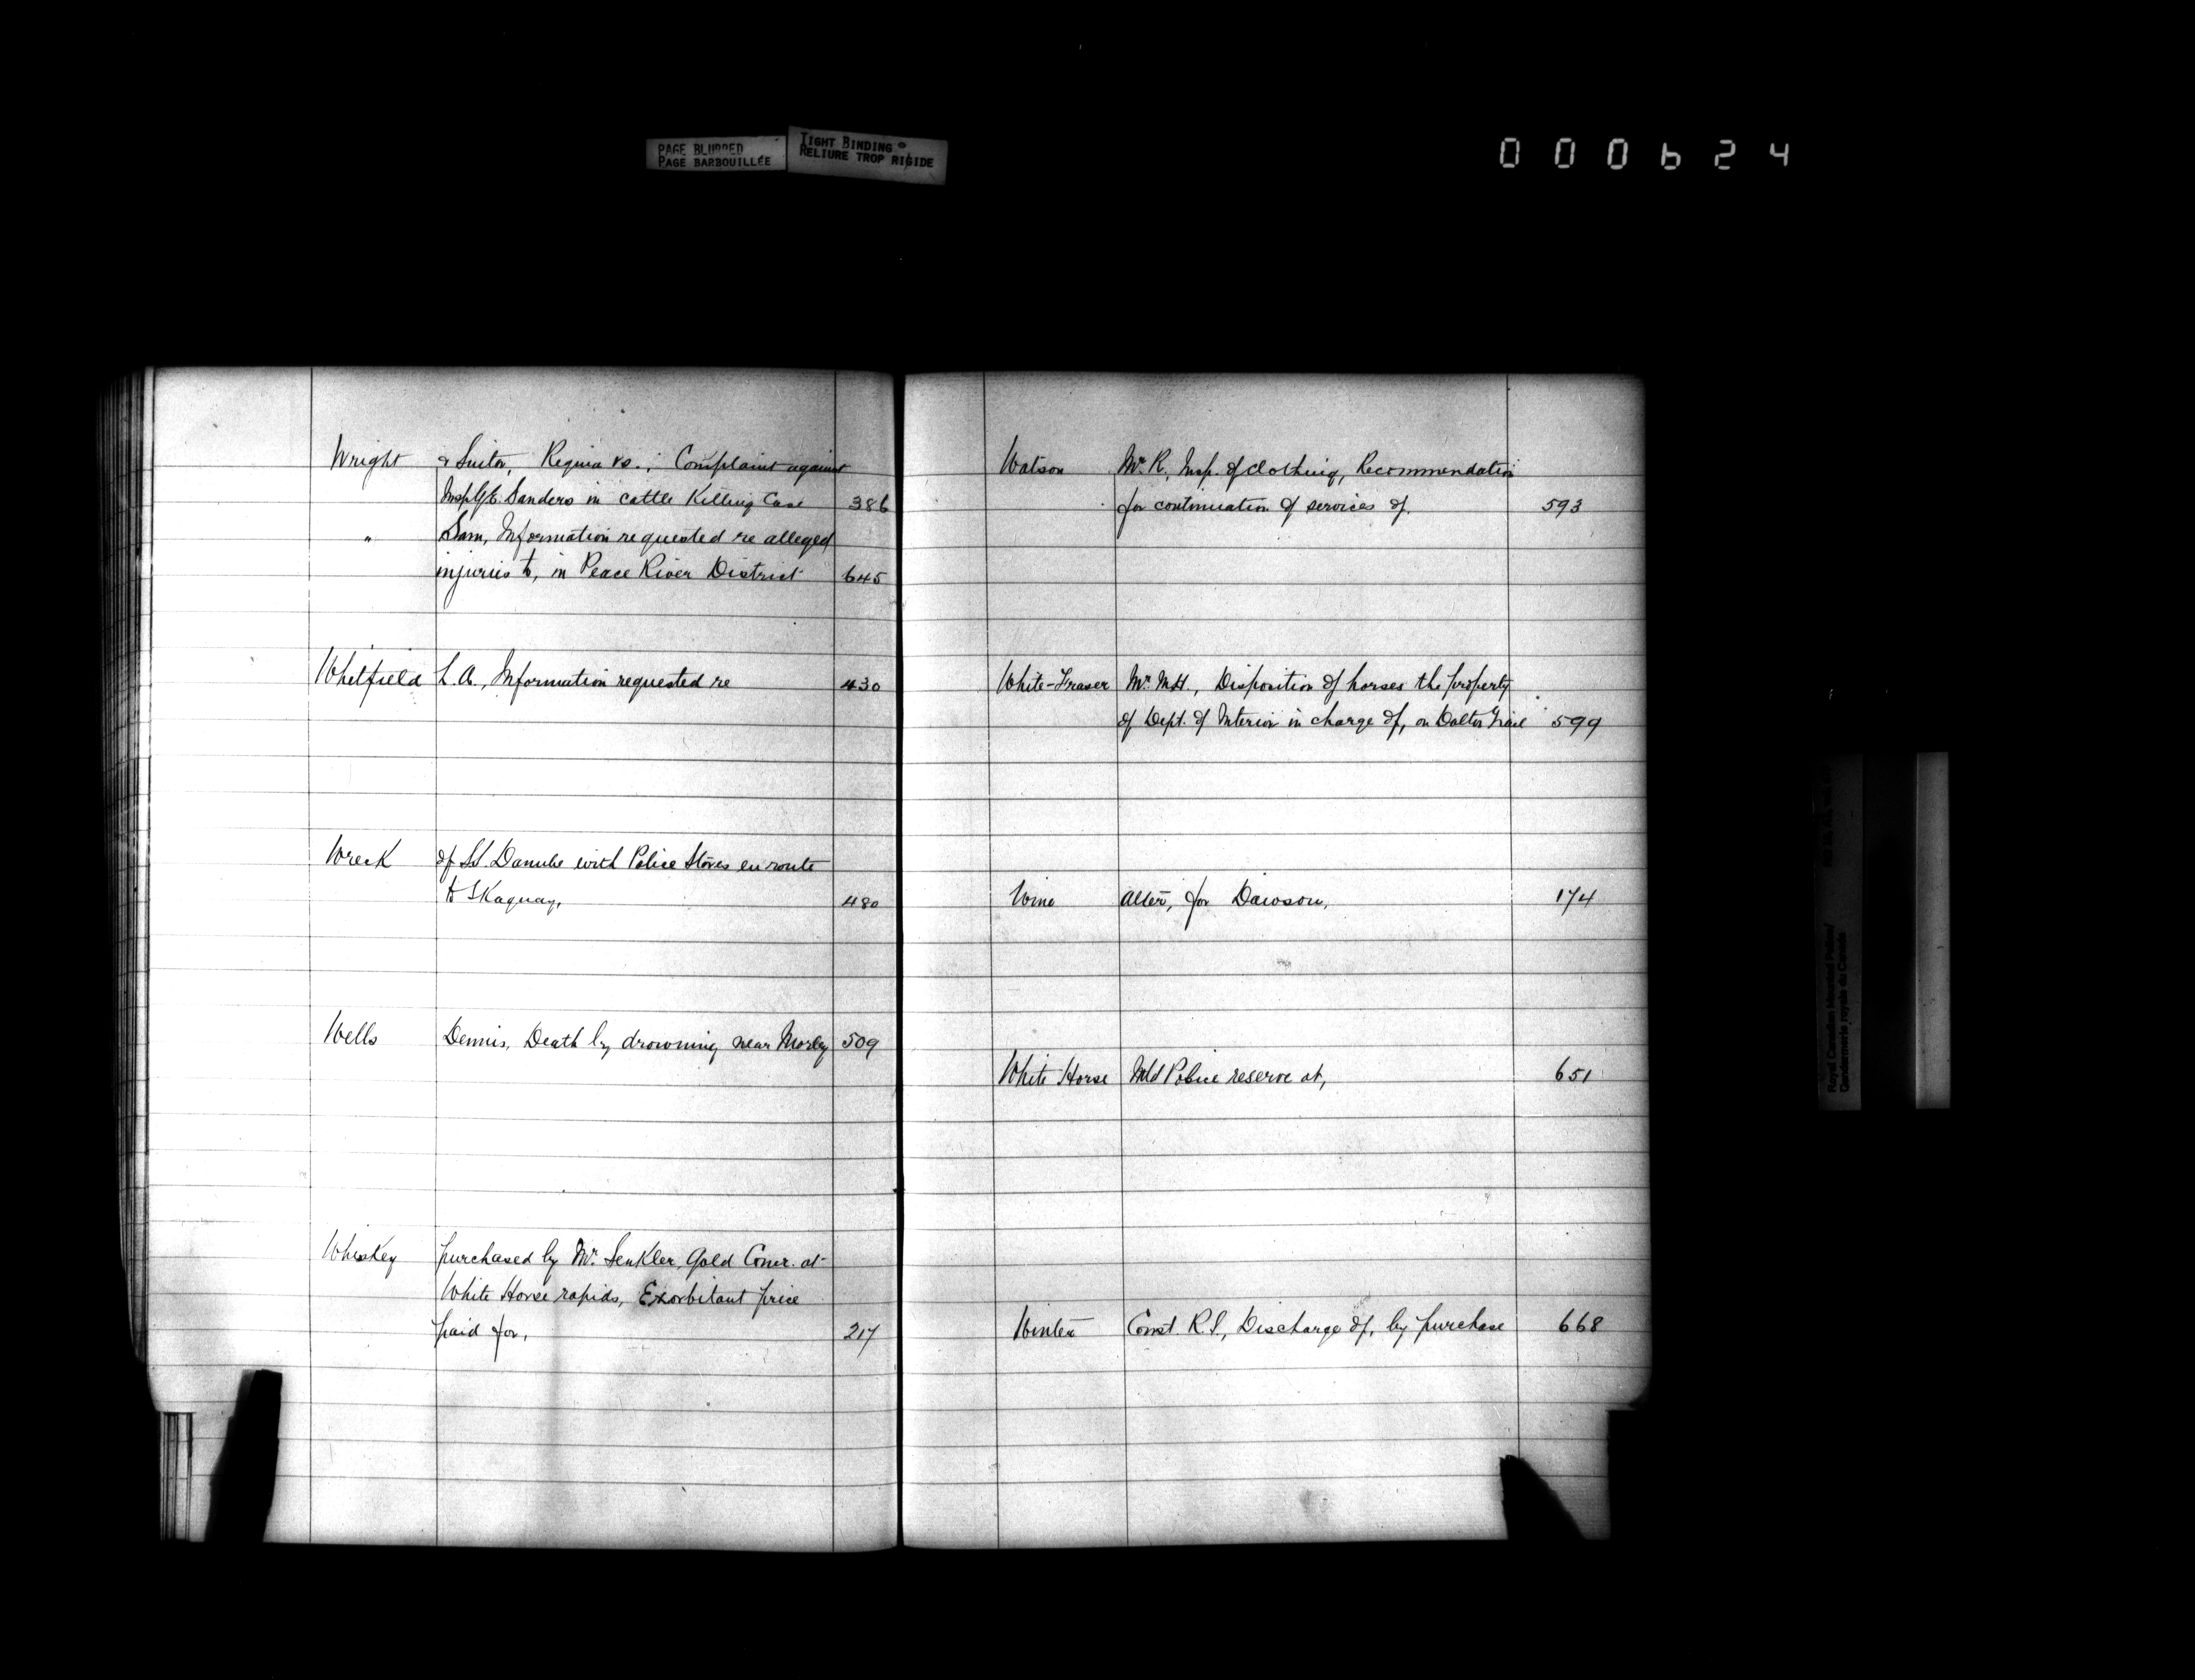 PAGE BLURRED
PAGE BARBOUILLÉE
TIGHT BINDING
RELIURE TROP RIGIDE
000624
Wright & Suitor, Regina vs.; Complaint against
Insp. G.E. Sanders in cattle Killing Case 386
" Sam, Information requested re alleged
injuries to, in Peace River District 645
Whitfield L.A., Information requested re 430
Wreck of SS. Danube with Police Stores en route
to SKaguay, 480
Wells Dennis, Death by drowning near Morley 509
Whiskey purchased by Mr. Senkler, Gold Comr. at
White Horse rapids, Exorbitant price
paid for, 217
Watson Mr. R. Insp. of Clothing, Recommendation
for continuation of services of. 593
White-Fraser Mr. M.H., Disposition of horses the property
of Dept. of Interior in charge of, on Dalton Trail 599
Wine for Dawson, 174
White Horse Mtd Police reserve at, 651
Winter Const. R.S., Discharge of, by purchase 668
Royal Canadian Mounted Police/
Gendarmerie royale du Canada